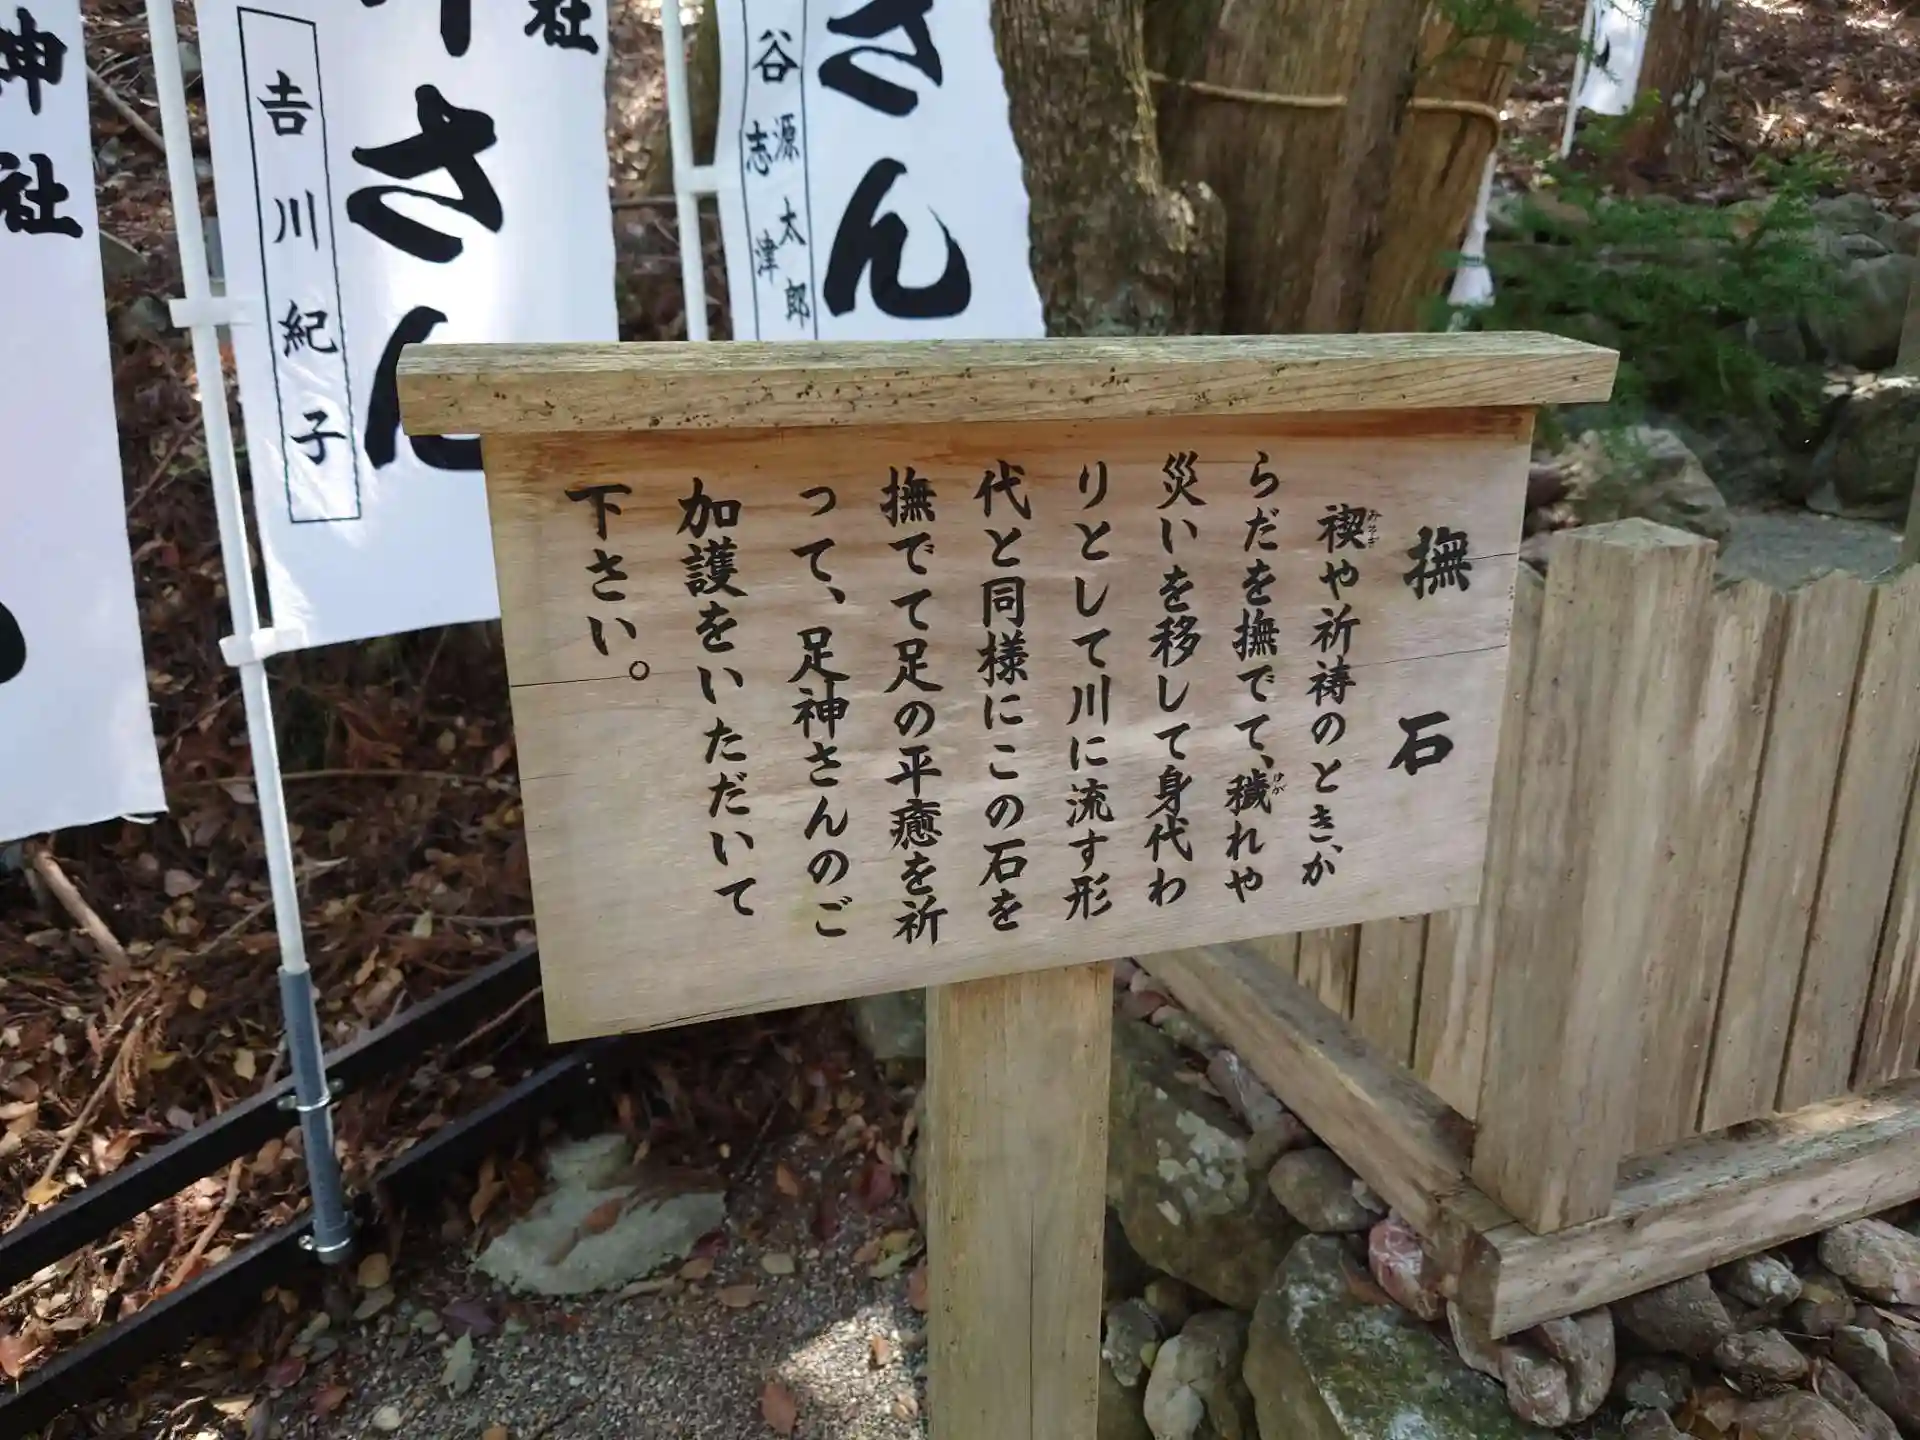 撫石
禊や祈祷のとき、か
みそぎ
らだを撫でて、穢れや
けが
災いを移して身代わ
りとして川に流す形
代と同様にこの石を
撫でて足の平癒を祈
って、足神さんのご
加護をいただいて
下さい。
さん
谷源太郎
志津
社
さん
吉川紀子
神社